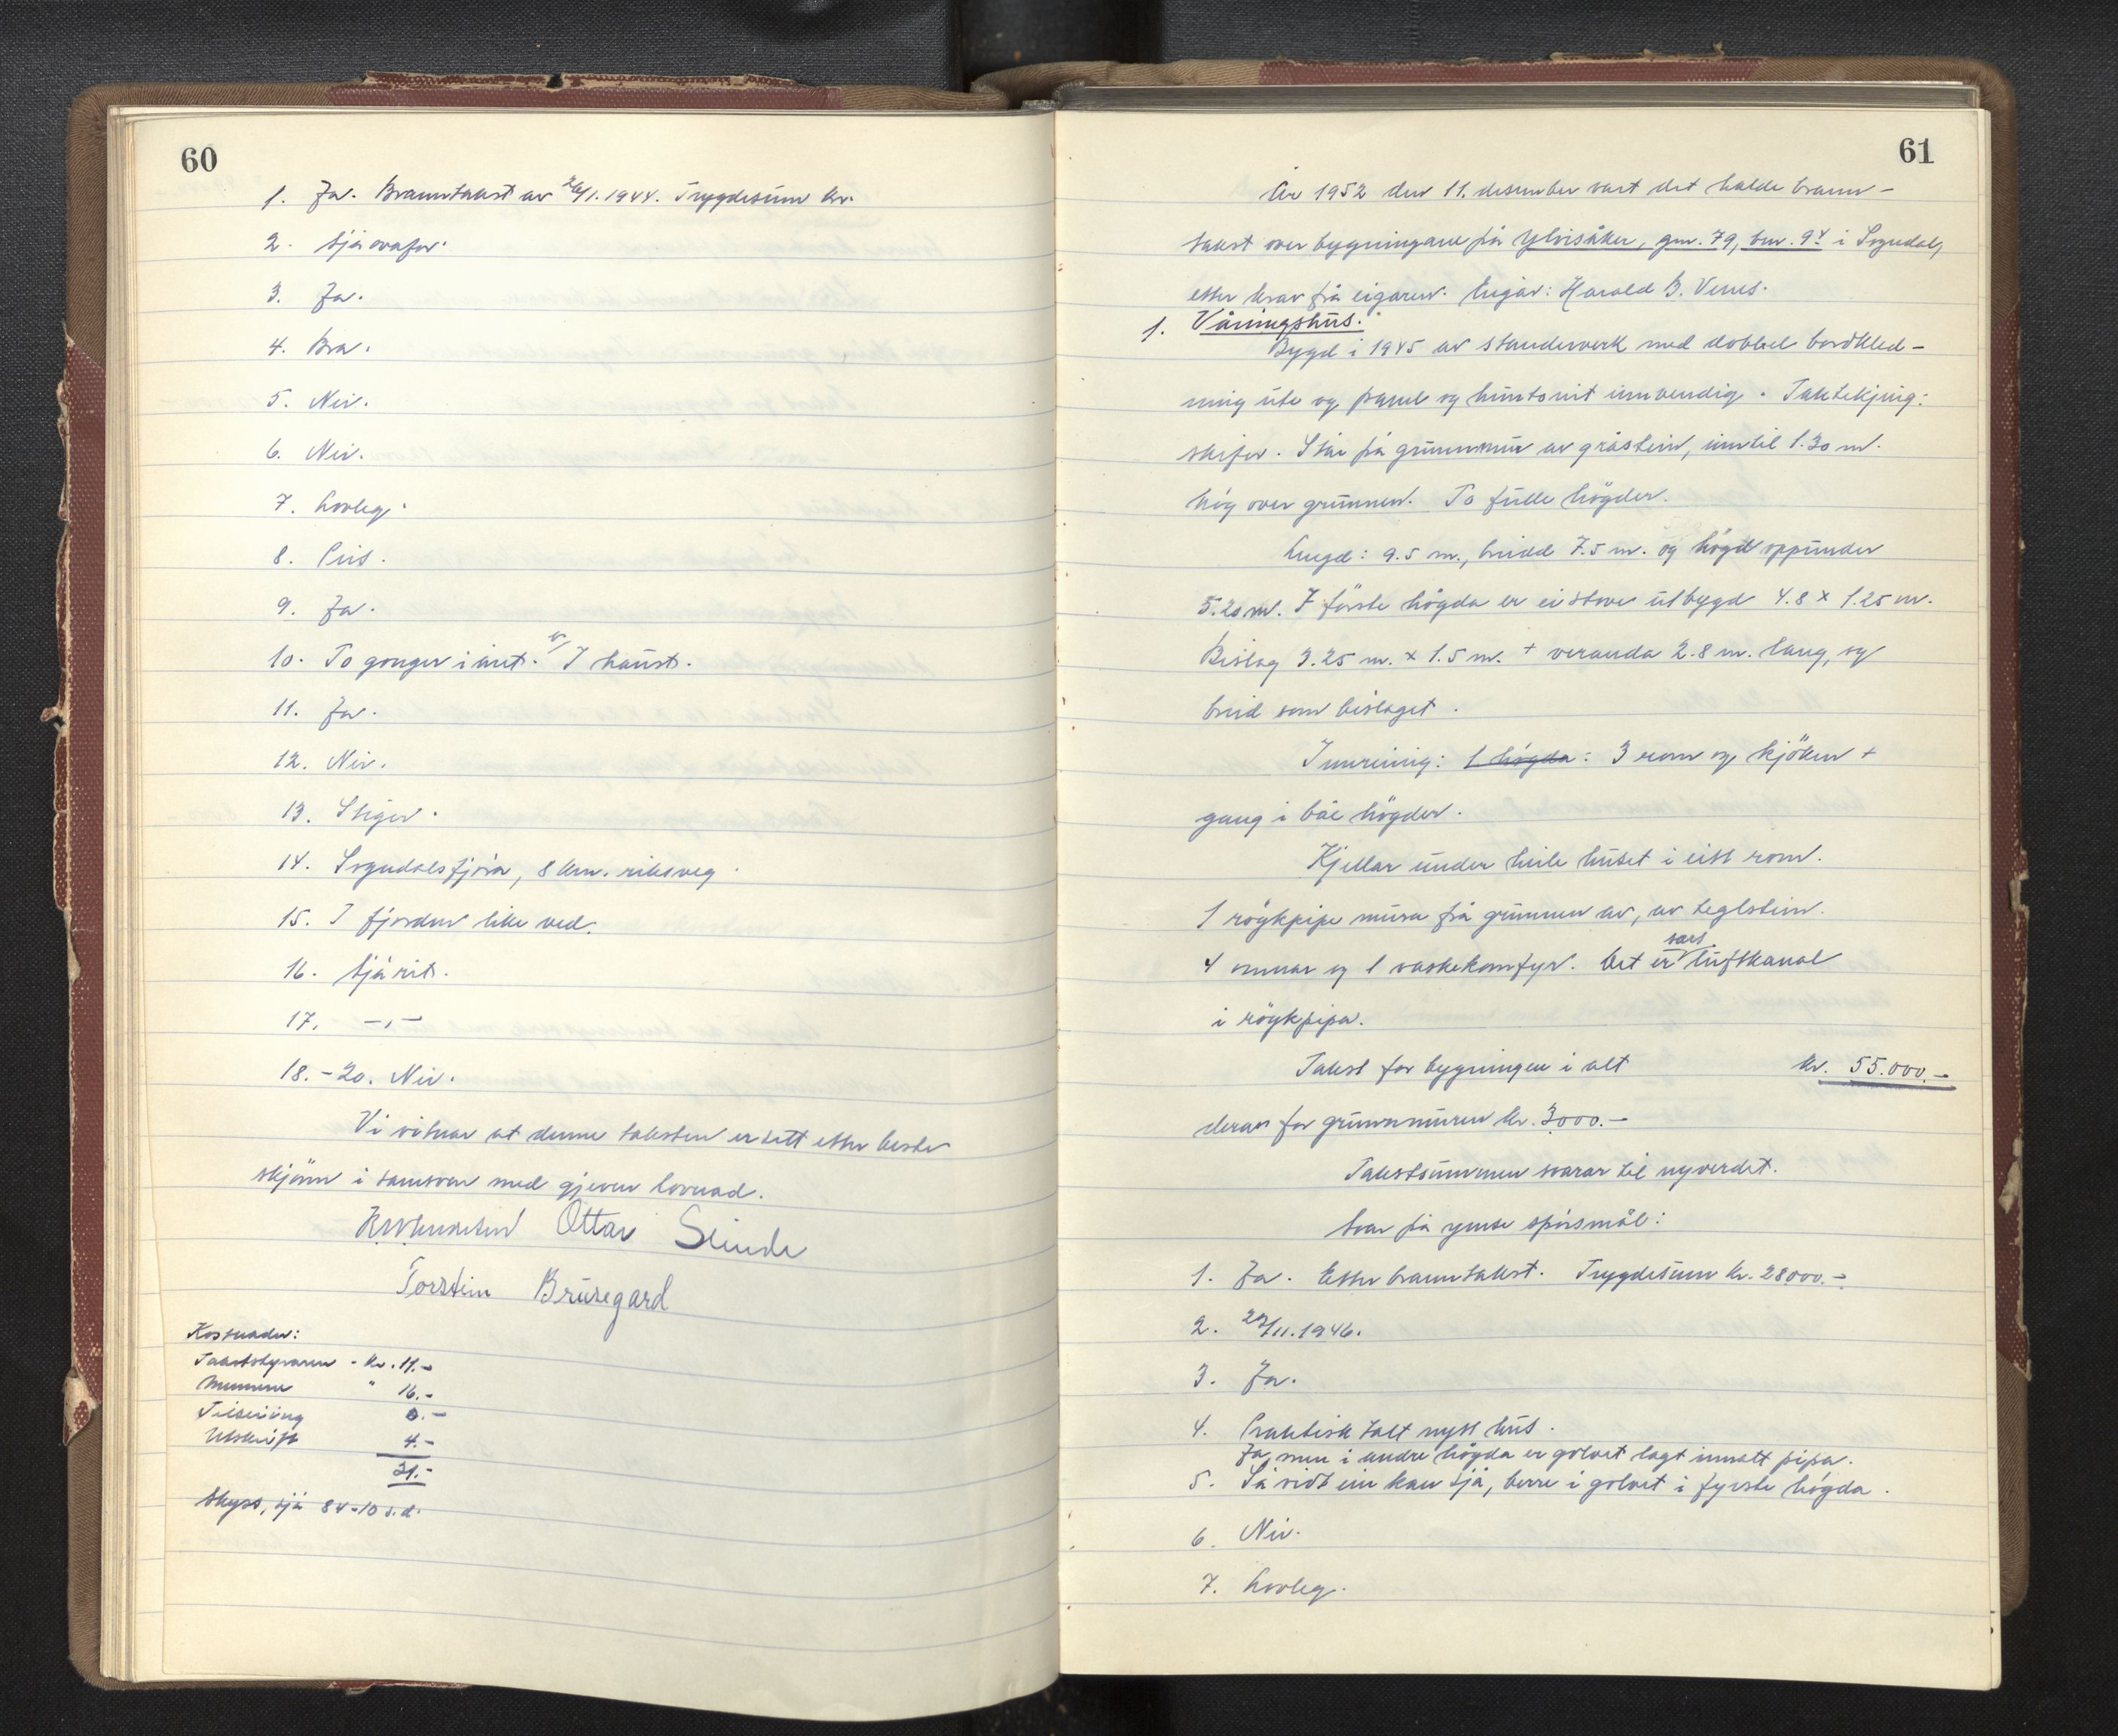 60
1. Ja. Branntakst av 26/1.1944. Trygdesum kr.
2. Sjå ovafor.
3. Ja.
4. Bra.
5. Nei.
6. Nei.
7. Lovleg.
8. Ljos.
9. Ja.
10. To gonger i året. I haust.
11. Ja.
12. Nei.
13. Stigar.
14. Sogndalsfjøra, 8 km. riksveg.
15. I fjorden like ved.
16. Sjå rit.
17. -,-
18.-20. Nei.
Vi vitnar at denne taksten er sett etter beste
skjønn i samsvar med gjeven lovnad.
Ottar Slinde
Torstein Brusegard
Kostnader:
Takststyraren - kr. 11.-
Mennene " 16.-
Tilseiing 0.-
Utskrift 4.-
31.-
Skyss, sjå 84-10 s.d.
61
År 1952 den 11. desember vart det halde brann-
takst over bygningane på Ylvisåker, gnr. 79, bnr. 94 i Sogndal,
etter krav frå eigaren. Eigar: Harald B. Venes.
1. Våningshus.
Bygd i 1945 av standerverk med dobbel bordkled-
ning ute og panel og huntonit innvendig. Taktekjing:
skifer. Står på grunnmur av gråstein, inntil 1.30 m.
høg over grunnen. To fulle høgder.
Lengd: 9.5 m., breidd 7.5 m. og høgd oppunder
5.20 m. I første høgda er ei stove utbygd 4.8 x 1.25 m.
Bislag 3.25 m. x 1.5 m. + veranda 2.8 m. lang, og
breid som bislaget.
Innreiing: 1 høgda: 3 rom og kjøken +
gang i båe høgder.
Kjellar under heile huset i eitt rom.
1 røykpipe mura frå grunnen av, av teglstein.
4 omnar og 1 vaskekomfyr. Det er sers. luftkanal
i røykpipa.
Takst for bygningen i alt kr. 55.000.-
derav for grunnmuren kr. 3000.-
Takstsummen svarar til nyverdet.
Svar på ymse spørsmål:
1. Ja. Etter branntakst. Trygdesum kr. 28000.-
2. 29/11.1946.
3. Ja.
4. Praktisk talt nytt hus.
Ja, men i andre høgda er golvet lagt inn att pipa.
5. Så vidt ein kan sjå, berre i golvet i fyrste høgda.
6. Nei.
7. Lovleg.